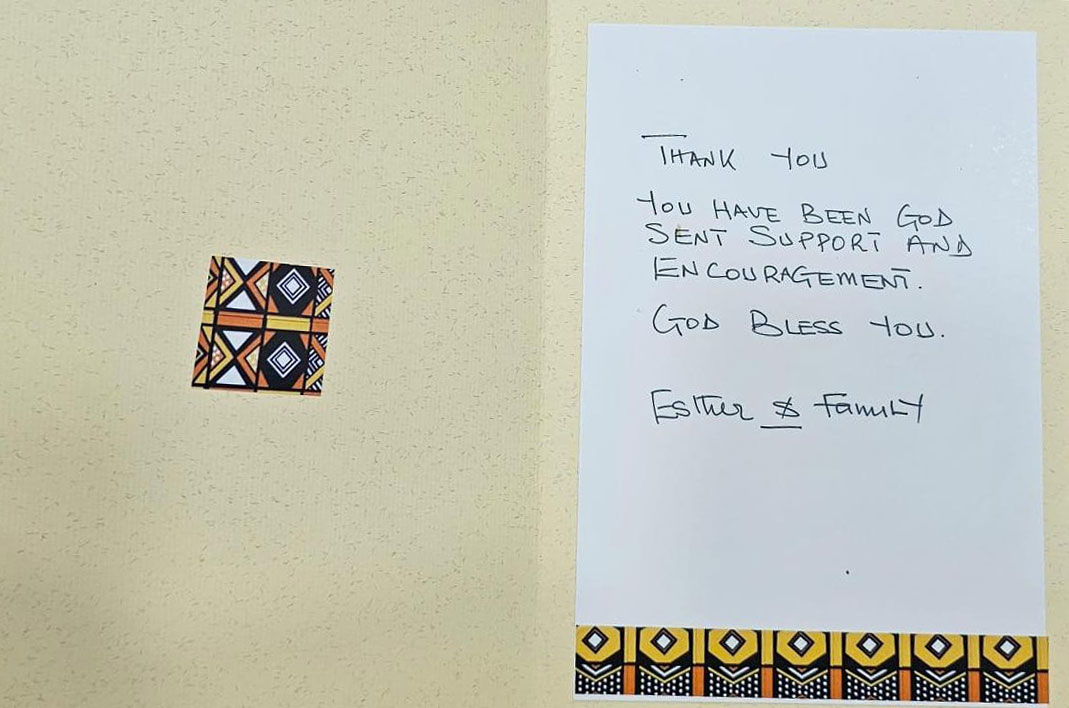 THANK YOU
YOU HAVE BEEN GOD
SENT SUPPORT AND
ENCOURAGEMENT.
GOD BLESS YOU.
Esther & Family